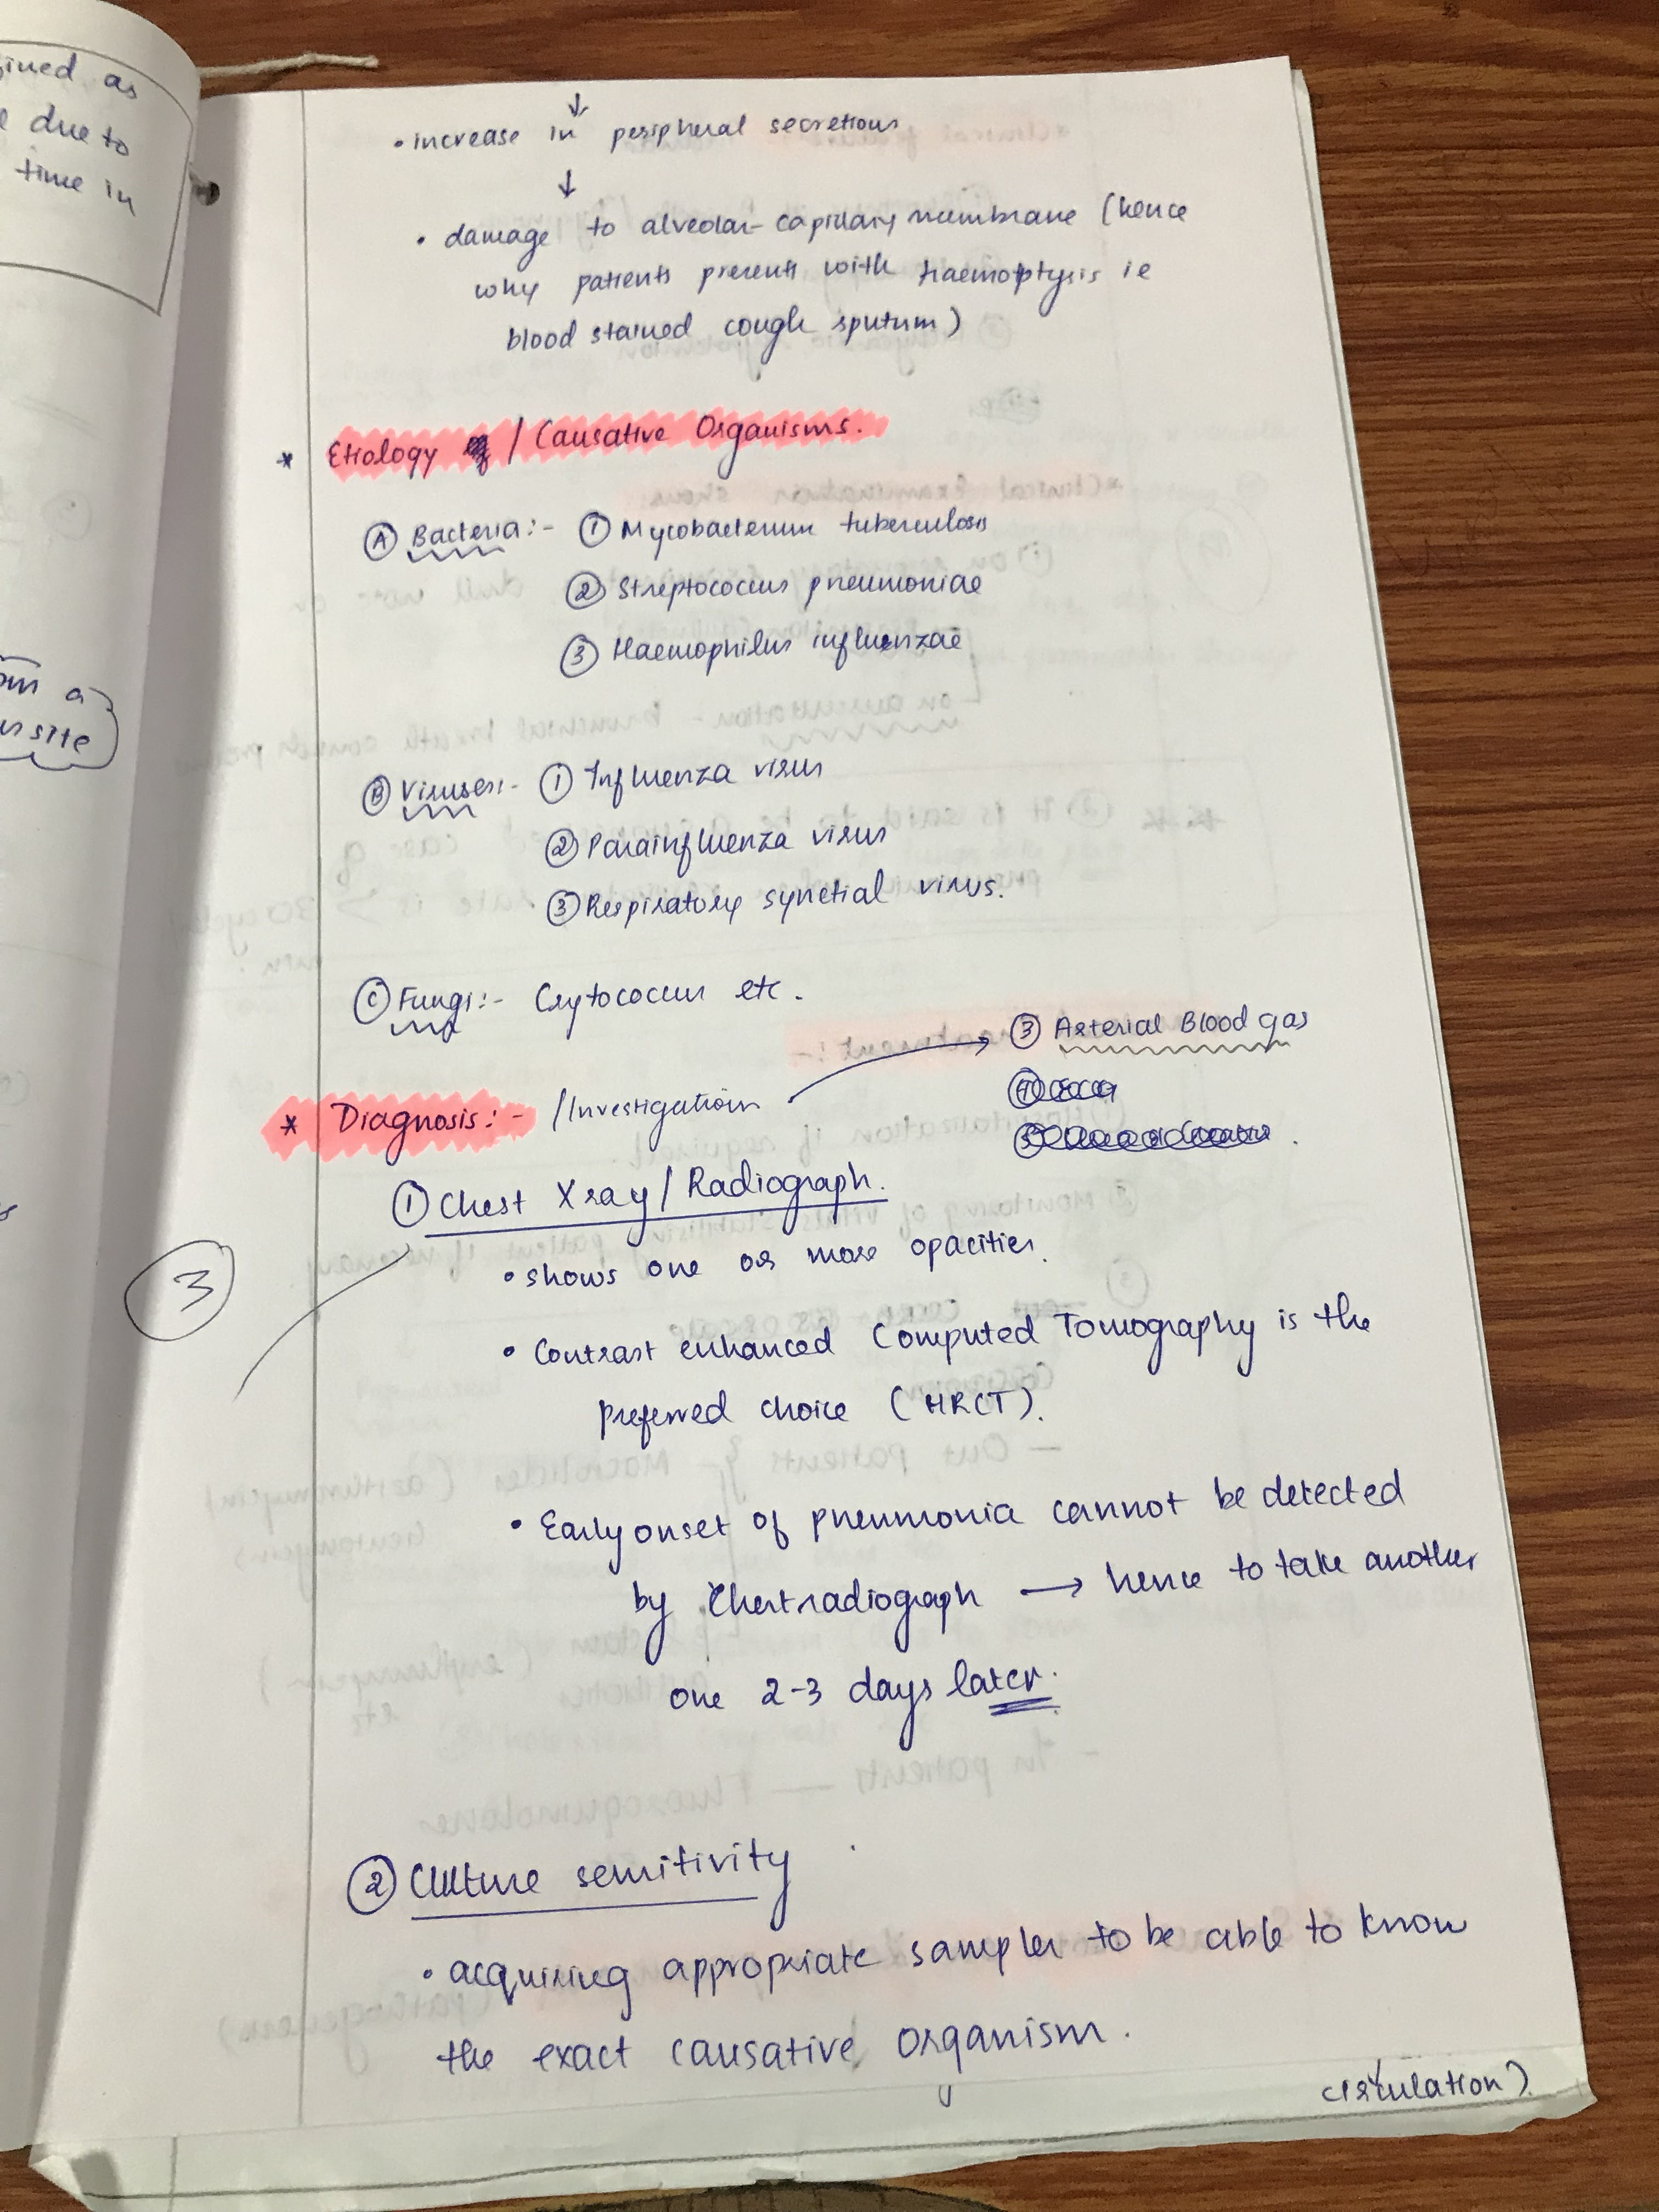 ined as
due to
time in
om a
site
↓
• increase in peripheral secretions
↓
• damage to alveolar-capillary membrane (hence
why patients presents with haemoptysis ie
blood stained cough sputum)
* Etiology / Causative Organisms.
Ⓐ Bacteria:- ① Mycobacterium tuberculosis
② Streptococcus pneumoniae
③ Haemophilus influenzae
Ⓑ Viruses:- ① Influenza virus
② Parainfluenza virus
③ Respiratory synctial virus.
Ⓒ Fungi:- Crytococcus etc.
③ Arterial Blood gas
* Diagnosis:- /Investigations
① Chest Xray / Radiograph.
• shows one or more opacities.
• Contrast enhanced Computed Tomography is the
preferred choice (HRCT).
3
• Early onset of pneumonia cannot be detected
by Chest radiograph → hence to take another
one 2-3 days later.
② Culture sensitivity
• acquiring appropriate samples to be able to know
the exact causative organism.
circulation)